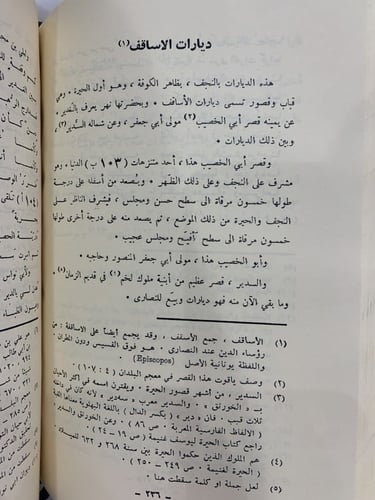 ديارات الاساقف (١)
هذه الديارات بالنجف ، بظاهر الكوفة ، وهو أول الحيرة . وهي
قباب وقصور تسمى ديارات الأساقف . وبحضرتها نهر يعرف بالغدير .
عن يمينه قصر أبي الخصيب (٢) مولى أبي جعفر ، وعن شماله السدير (٣) ،
وبين ذلك الديارات .
وقصر أبي الخصيب هذا ، أحد متنزهات (١٠٣ ب) الدنيا . وهو
مشرف على النجف وعلى ذلك الظهر . ويُصعد من أسفله على درجة
طولها خمسون مرقاة الى سطح حسن ومجلس ، فيشرف الناظر على
النجف والحيرة من ذلك الموضع ، ثم يصعد منه على درجة أخرى طولها
خمسون مرقاة الى سطح أفيح ومجلس عجيب .
وأبو الخصيب هذا ، مولى أبي جعفر المنصور وحاجبه .
والسدير ، قصر عظيم من أبنية ملوك لخم (٤) في قديم الزمان (٥) .
وما بقي الآن منه فهو ديارات وبيع للنصارى .
(١) الأساقف ، جمع الأسقف . وقد يجمع أيضاً على الاساقفة : من
رؤساء الدين عند النصارى . هو فوق القسيس ودون المطران .
واللفظة يونانية الأصل (Episcopos) .
(٢) وصف ياقوت هذا القصر في معجم البلدان (٤ : ١٠٧)
(٣) السدير ، من أشهر قصور الحيرة . ويقترن اسمه في أكثر الأحيان
بـ « الخورنق » . والسدير معرب « سه‌دير » لأنه كان في داخله
ثلاث قبب . فان « دير » ( بكسر الدال ) باللغة البهلوية معناها القبة
( الالفاظ الفارسية المعربة ص ٨٦ ) . وعن الخورنق والسدير ،
راجع كتاب الحيرة ليوسف غنيمة ( ص ١٩ – ٢٤ ) .
(٤) هم الملوك الذين حكموا الحيرة بين سنة ٢٦٨ و ٦٣٢ للميلاد .
( الحيرة لغنيمة . ص ٢٤٩ – ٢٥٠ ) .
(٥) لعل جملة أو كلمة سقطت هنا .
– ٢٣٦ –